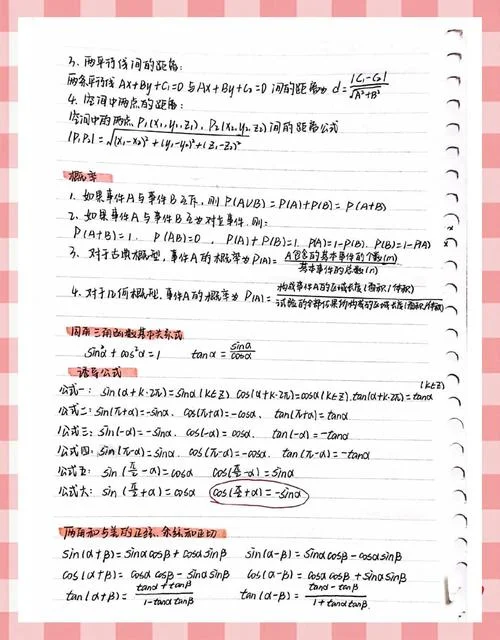 3. 两平行线间的距离:
两条平行线 Ax+By+C₁=0 与 Ax+By+C₂=0 间的距离为 d=|C₁-C₂|/√(A²+B²)
4. 空间中两点的距离:
空间中的两点, P₁(x₁,y₁,z₁), P₂(x₂,y₂,z₂)间的距离公式
|P₁P₂|=√((x₁-x₂)²+(y₁-y₂)²+(z₁-z₂)²)
概率
1. 如果事件A与事件B互斥, 则 P(A∪B)=P(A)+P(B)=P(A+B)
2. 如果事件A与事件B互为对立事件. 则:
P(A+B)=1. P(AB)=0, P(A)+P(B)=1. P(A)=1-P(B). P(B)=1-P(A)
3. 对于古典概型, 事件A的概率为P(A)=A包含的基本事件的个数(m)/基本事件的总数(n)
4. 对于几何概型. 事件A的概率为 P(A)=构成事件A的区域长度(面积/体积)/试验的全部结果所构成的区域长度(面积/体积)
同角三角函数基本关系式
sin²α+cos²α=1 tanα=sinα/cosα
诱导公式
公式一: sin(α+k·2π)=sinα(k∈Z) cos(α+k·2π)=cosα(k∈Z). tan(α+k·2π)=tanα (k∈Z)
公式二: sin(π+α)=-sinα. cos(π+α)=-cosα. tan(π+α)=tanα
公式三: sin(-α)=-sinα. cos(-α)=cosα. tan(-α)=-tanα
公式四: sin(π-α)=sinα. cos(π-α)=-cosα. tan(π-α)=-tanα
公式五: sin(π/2-α)=cosα cos(π/2-α)=sinα
公式六: sin(π/2+α)=cosα cos(π/2+α)=-sinα
两角和与差的正弦、余弦和正切
sin(α+β)=sinαcosβ+cosαsinβ sin(α-β)=sinαcosβ-cosαsinβ
cos(α+β)=cosαcosβ-sinαsinβ cos(α-β)=cosαcosβ+sinαsinβ
tan(α+β)=(tanα+tanβ)/(1-tanαtanβ) tan(α-β)=(tanα-tanβ)/(1+tanαtanβ)